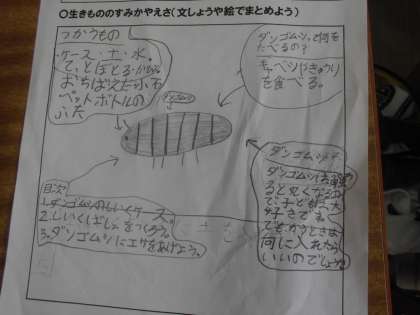 ○生きもののすみかやえさ(文しょうや絵でまとめよう)
つかうもの
ケース・土・水。
おちばえだ
ペットボトルの
ふた
ダンゴムシ
ダンゴムシは何を
たべるの?
キャベツやきゅうり
を食べる。
目次
1.ダンゴムシのしいくケース。
2.しいくばしょをつくろう。
3.ダンゴムシにエサをあげよう。
ダンゴムシは
ると丸くなるの
で、子どもは大
好きです。
かうときは
何に入れたら
いいのでしょう。